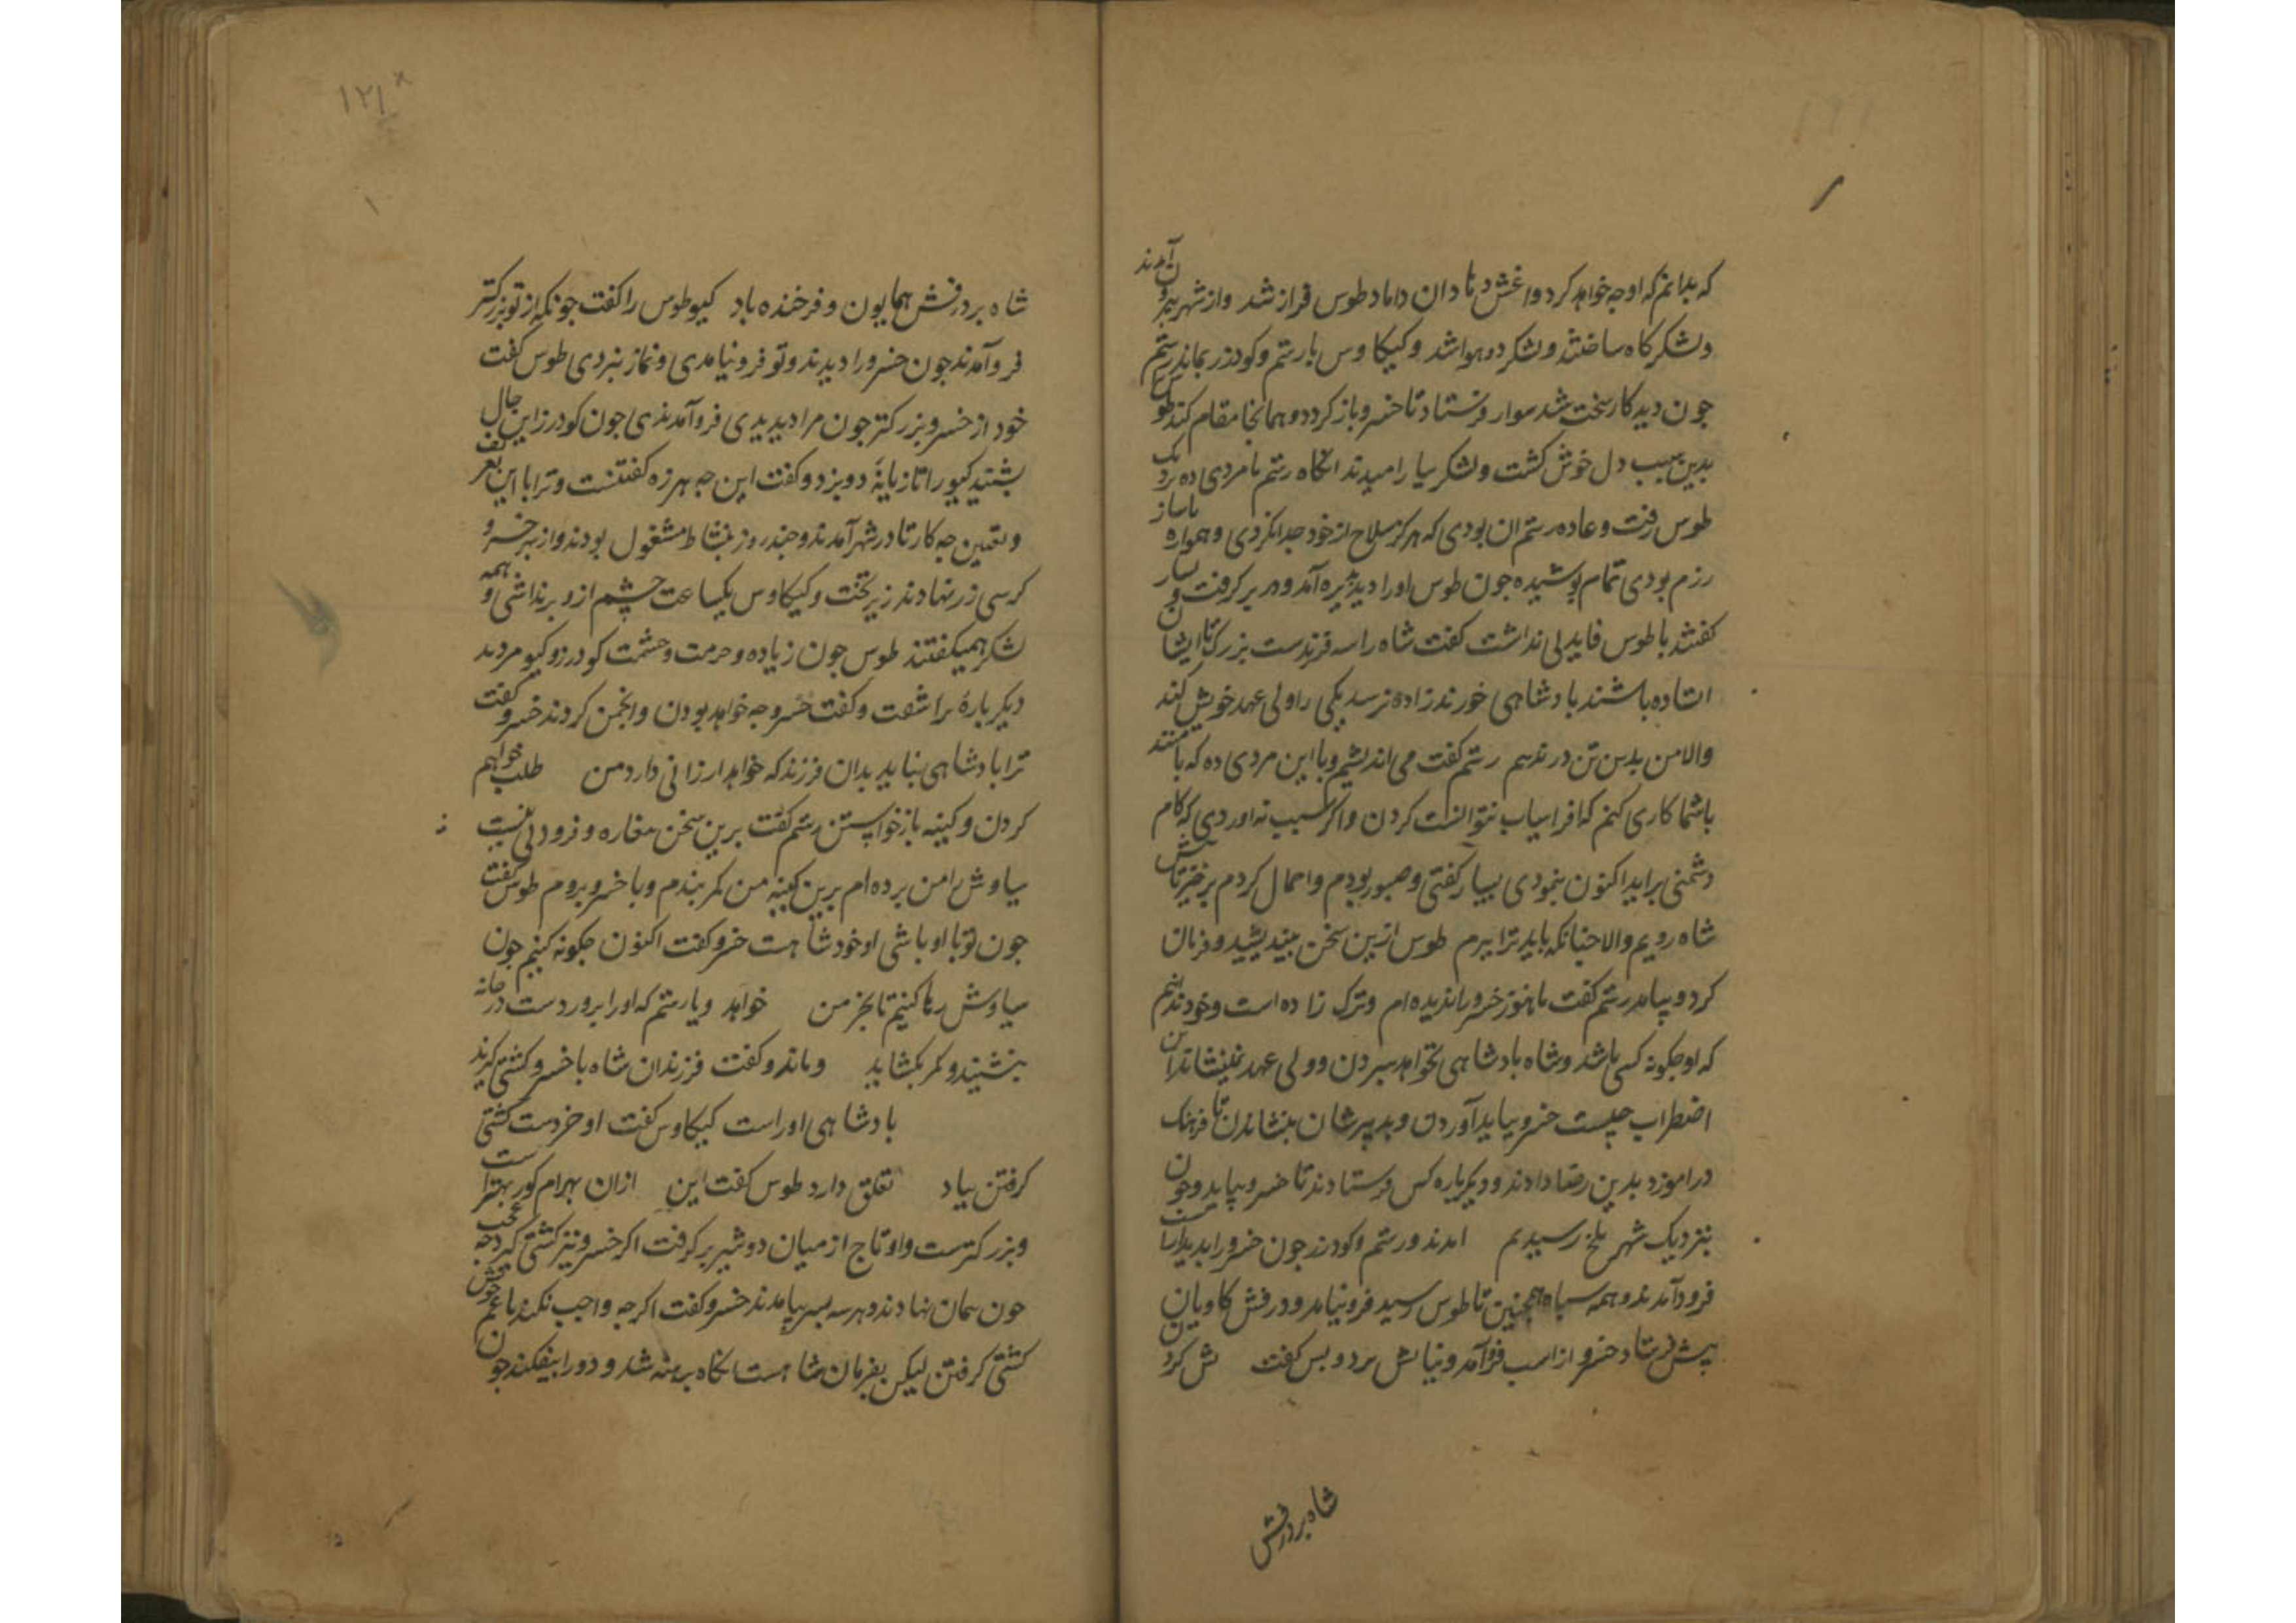 که بدانم که او چه خواهد کرد و اغش دنادان داماد طوس فراز شد و از شهر بیرون آمدند
و لشکرکاه ساختند و لشکر دو هوا شد و کیکاوس با رستم و کودرز بماند رستم
جون دید کار سخت شد سوار فرستاد تا خسرو باز کردد و همانجا مقام کند طوس
بدین سبب دل خوش کشت و لشکر بیارامیدند انکاه رستم با مردی ده نزدیک
طوس رفت و عاده رستم ان بودی که هرکز سلاح از خود جدا نکردی و همواره باساز
رزم بودی تمام پوشیده جون طوس اورا دید پذیره آمد و در بر کرفت و بسیار
کفتند با طوس فایدلی نداشت کفت شاه را سه فرزندست بزرک تا ایشان
استاده باشند بادشاهی خورند زاده نرسد یکی را ولی عهد خویش کند
والا من بدین تن در ندهم رستم کفت می اندیشم و با این مردی ده که با منند
با شما کاری کنم که افراسیاب نتوانست کردن و اکر سبب نه اوردی که کام
دشمنی براید اکنون بنمودی بسیار کفتی و صبور بودم و احمال کردم برخیز تا پیش
شاه رویم والا جنانکه باید ترا ببرم طوس ازین سخن بیندیشید و فرمان
کرد و بیامد رستم کفت ما هنوز خسرو را ندیده ام و ترک زاده است و خود ندانیم
که او جکونه کسی باشد و شاه بادشاهی نخواهد سبردن و ولی عهد نمینشاند این
اضطراب چیست خسرو بیاید آوردن و بدر پسرشان بنشاندن تا فرهنک
دراموزد بدین رضا دادند و دیکرباره کس فرستادند تا خسرو بیاید و جون
بنزدیک شهر بلخ رسیدیم امدند و رستم و کودرز جون خسرو را بدید راست
فرود آمدند و همه سپاه همچنین تا طوس رسید فرو نیامد و درفش کاویان
پیش فرستاد خسرو از اسب فرو آمد و نیایش برد و بس کفت ش کردن
شاه بر درفش
۱۲۱
شاه بر درفش همایون و فرخنده باد کیو طوس را کفت جونکه از تو بزرکتر
فرو آمدند جون خسرو را دیدند و تو فرو نیامدی و نماز نبردی طوس کفت
خود از خسرو بزرکتر جون مرا دیدیدی فرو آمدندی جون کودرز این حال
بشنید کیو را تازیانهٔ دو بزد و کفت این جه هرزه کفتنست و ترا با این
و تعیین جه کار تا در شهر آمدند و جند روز بنشاط مشغول بودند و از بهر خسرو
کرسی زر نهادند زیر تخت و کیکاوس یکساعت چشم ازو برنداشتی و همه
لشکر همیکفتند طوس جون زیاده و حرمت و حشمت کودرز و کیو مردید
دیکرباره براشفت و کفت خسرو جه خواهد بودن و انجمن کردند خسرو کفت
ترا بادشاهی نباید بدان فرزند که خواهد ارزانی دارد من طلب خواهم
کردن و کینه بازخواستن رستم کفت برین سخن و فرودلی نیست
سیاوش را من برده ام برین کینه من کمر بندم و با خسرو بروم طوس کفت
جون تو با او باشی او خود شاهست خسرو کفت اکنون جکونه کنیم جون
سیاوش رها کنیم تا بجز من خواهد و یا رستم که او را برورد است در خانه
بنشیند و کمر بکشاید و ماند و کفت فرزندان شاه با خسرو کشتی کیرند
بادشاهی اوراست کیکاوس کفت او خردست کشتی
کرفتن بیاد تعلق دارد طوس کفت این ازان بهرام کور بهتر است
و بزرکترست و او تاج از میان دو شیر برکرفت اکر خسرو نیز کشتی کیرد جه عجب
جون سمان نهادند و هر سه بسر بیامدند خسرو کفت اکرجه واجب نکند با عم خویش
کشتی کرفتن لیکن بفرمان شاهست انکاه برهنه شد و دو را بیفکند جون